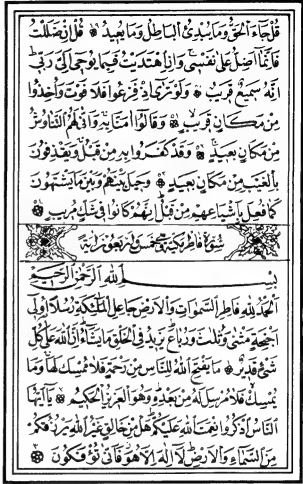 قل جاء الحق وما يبدئ الباطل وما يعيد قل ان ضللت
فانما اضل على نفسي وان اهتديت فبما يوحي الي ربي
انه سميع قريب ولو ترى اذ فزعوا فلا فوت واخذوا
من مكان قريب وقالوا امنا به وانى لهم التناوش
من مكان بعيد وقد كفروا به من قبل ويقذفون
بالغيب من مكان بعيد وحيل بينهم وبين ما يشتهون
كما فعل باشياعهم من قبل انهم كانوا في شك مريب
سورة فاطر مكية وهي خمس واربعون اية
بسم الله الرحمن الرحيم
الحمد لله فاطر السموات والارض جاعل الملئكة رسلا اولي
اجنحة مثنى وثلث ورباع يزيد في الخلق ما يشاء ان الله على كل
شئ قدير ما يفتح الله للناس من رحمة فلا ممسك لها وما
يمسك فلا مرسل له من بعده وهو العزيز الحكيم يا ايها
الناس اذكروا نعمت الله عليكم هل من خالق غير الله يرزقكم
من السماء والارض لا اله الا هو فانى تؤفكون